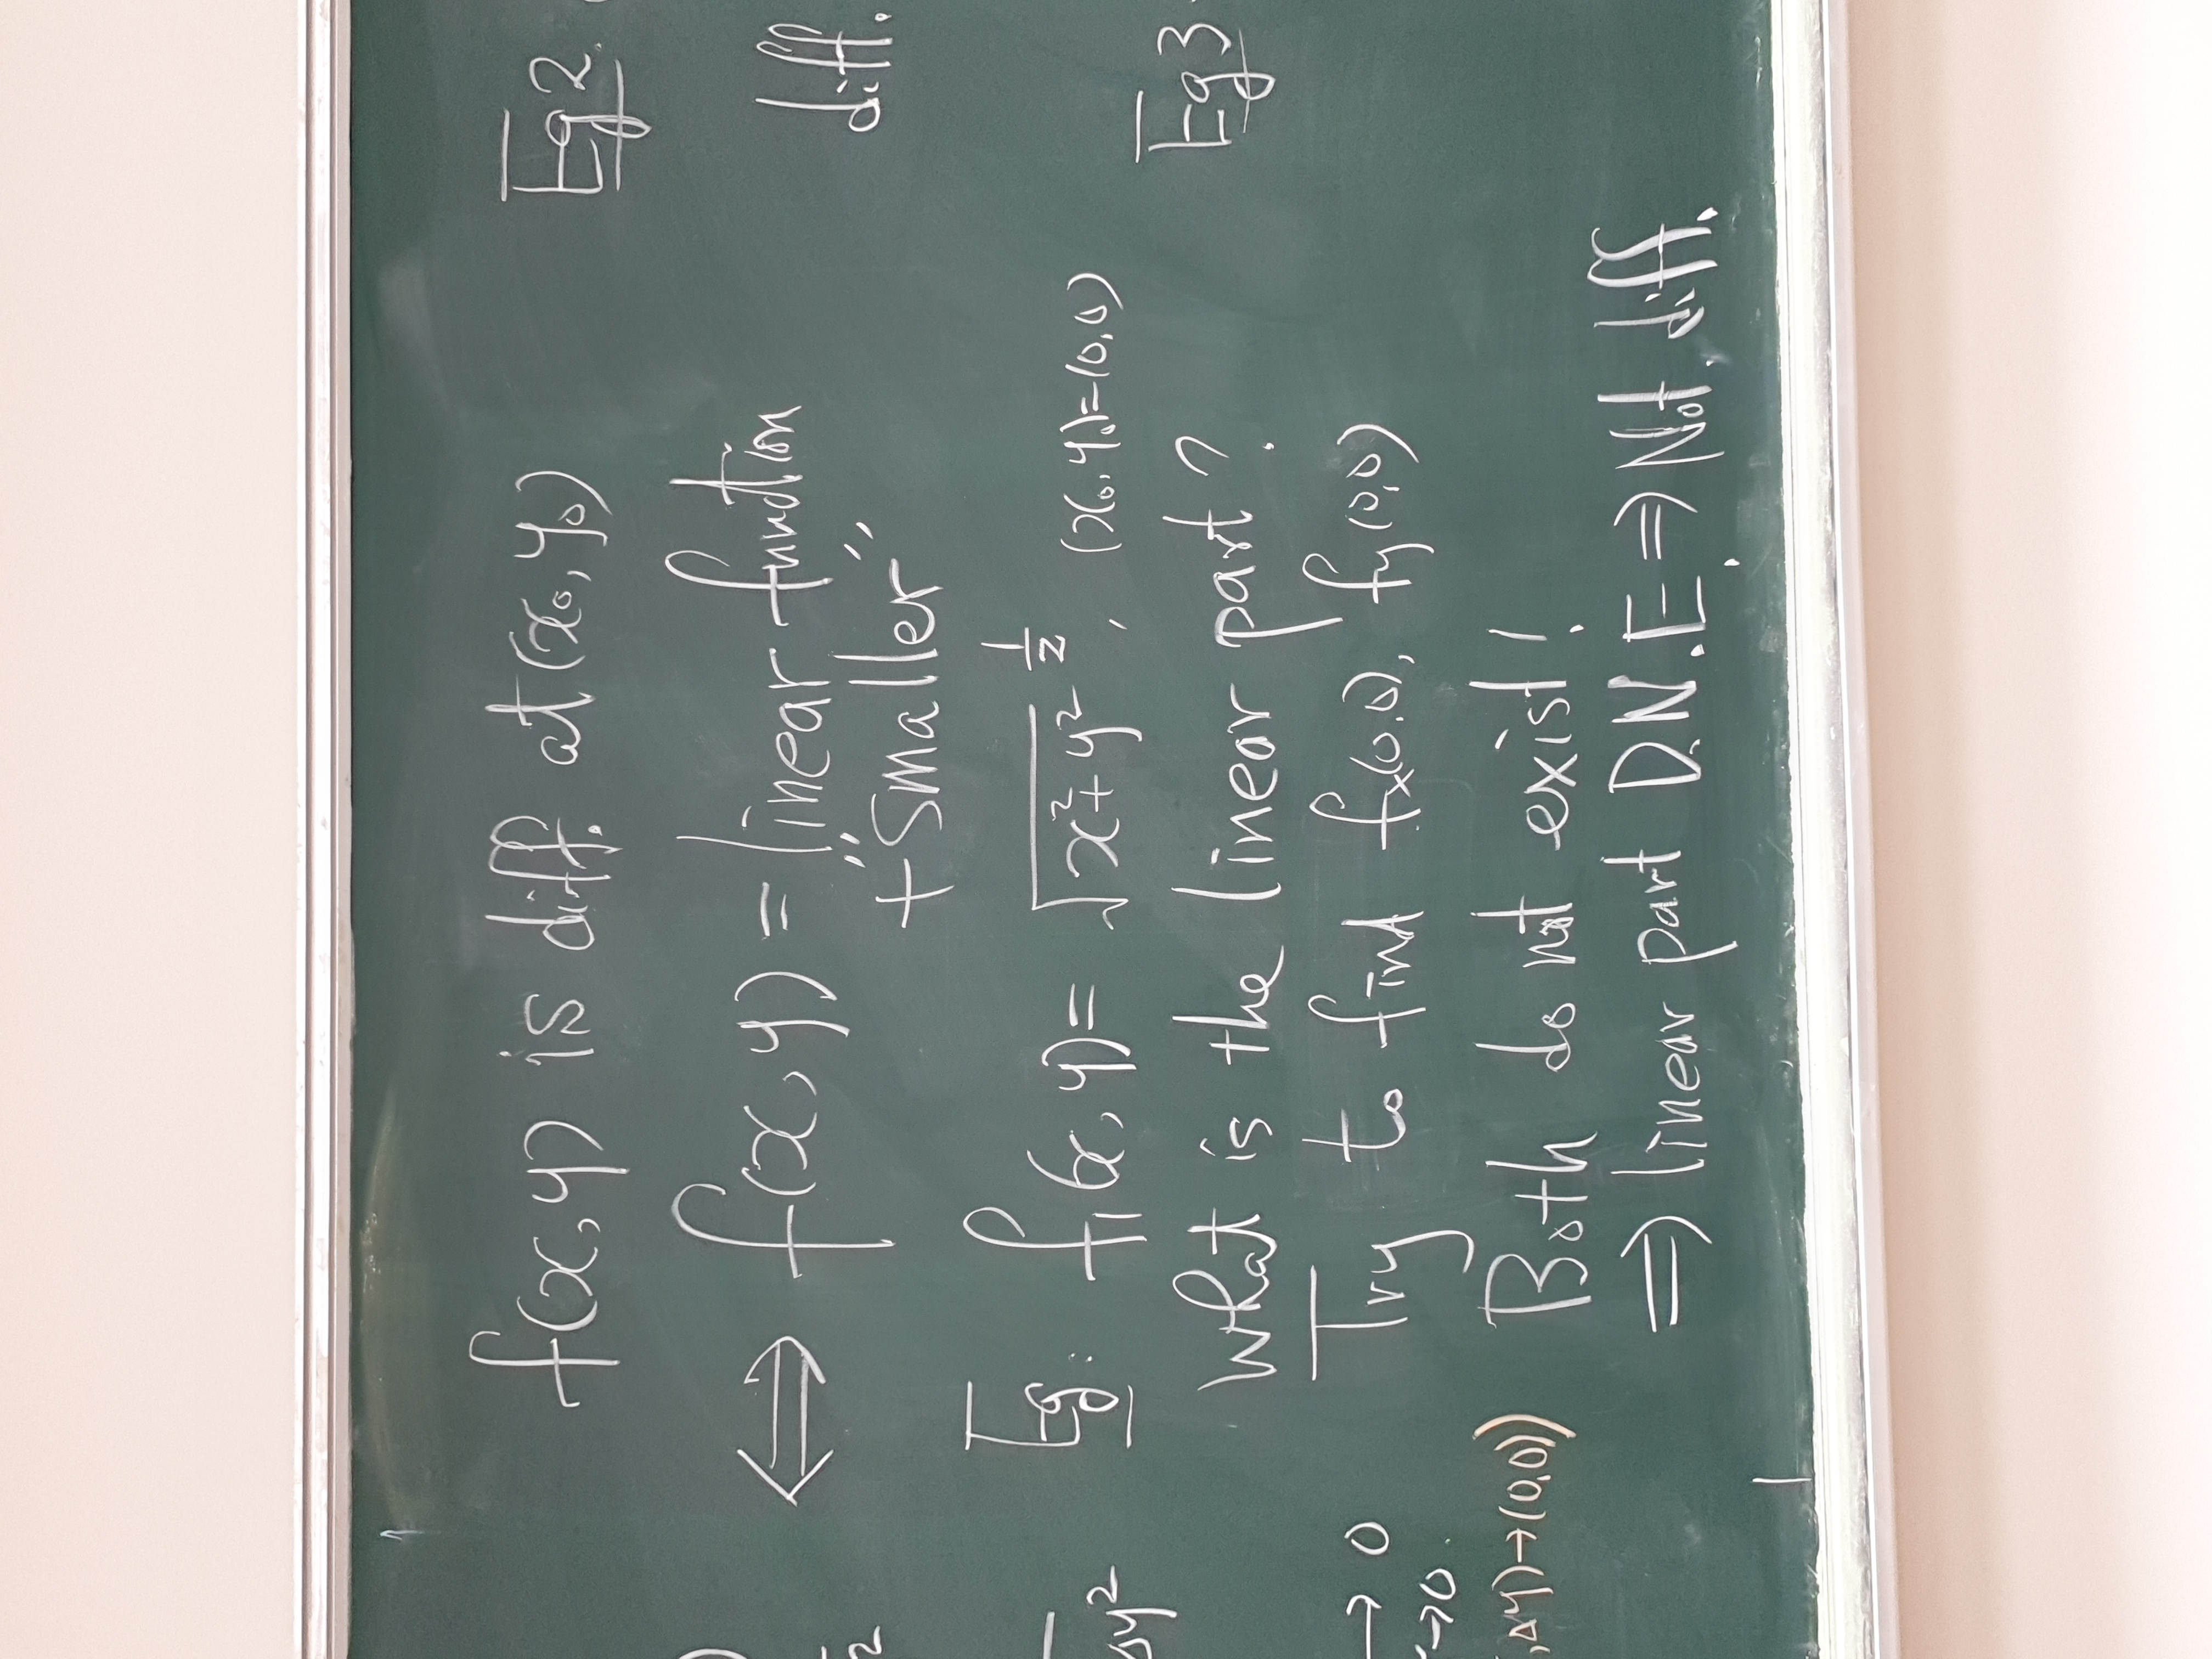 f(x,y) is diff. at (x₀,y₀)
⇔ f(x,y) = linear function
+ "smaller"
Eg: f₁(x,y) = √x²+y² ½, (x₀,y₀)=(0,0)
What is the linear part?
Try to find fx(0,0), fy(0,0)
Both do not exist!
⇒ linear part D.N.E. ⇒ Not diff.
Eg2.
diff.
Eg3
y²
→ 0
→0.
,Δy)→(0,0))